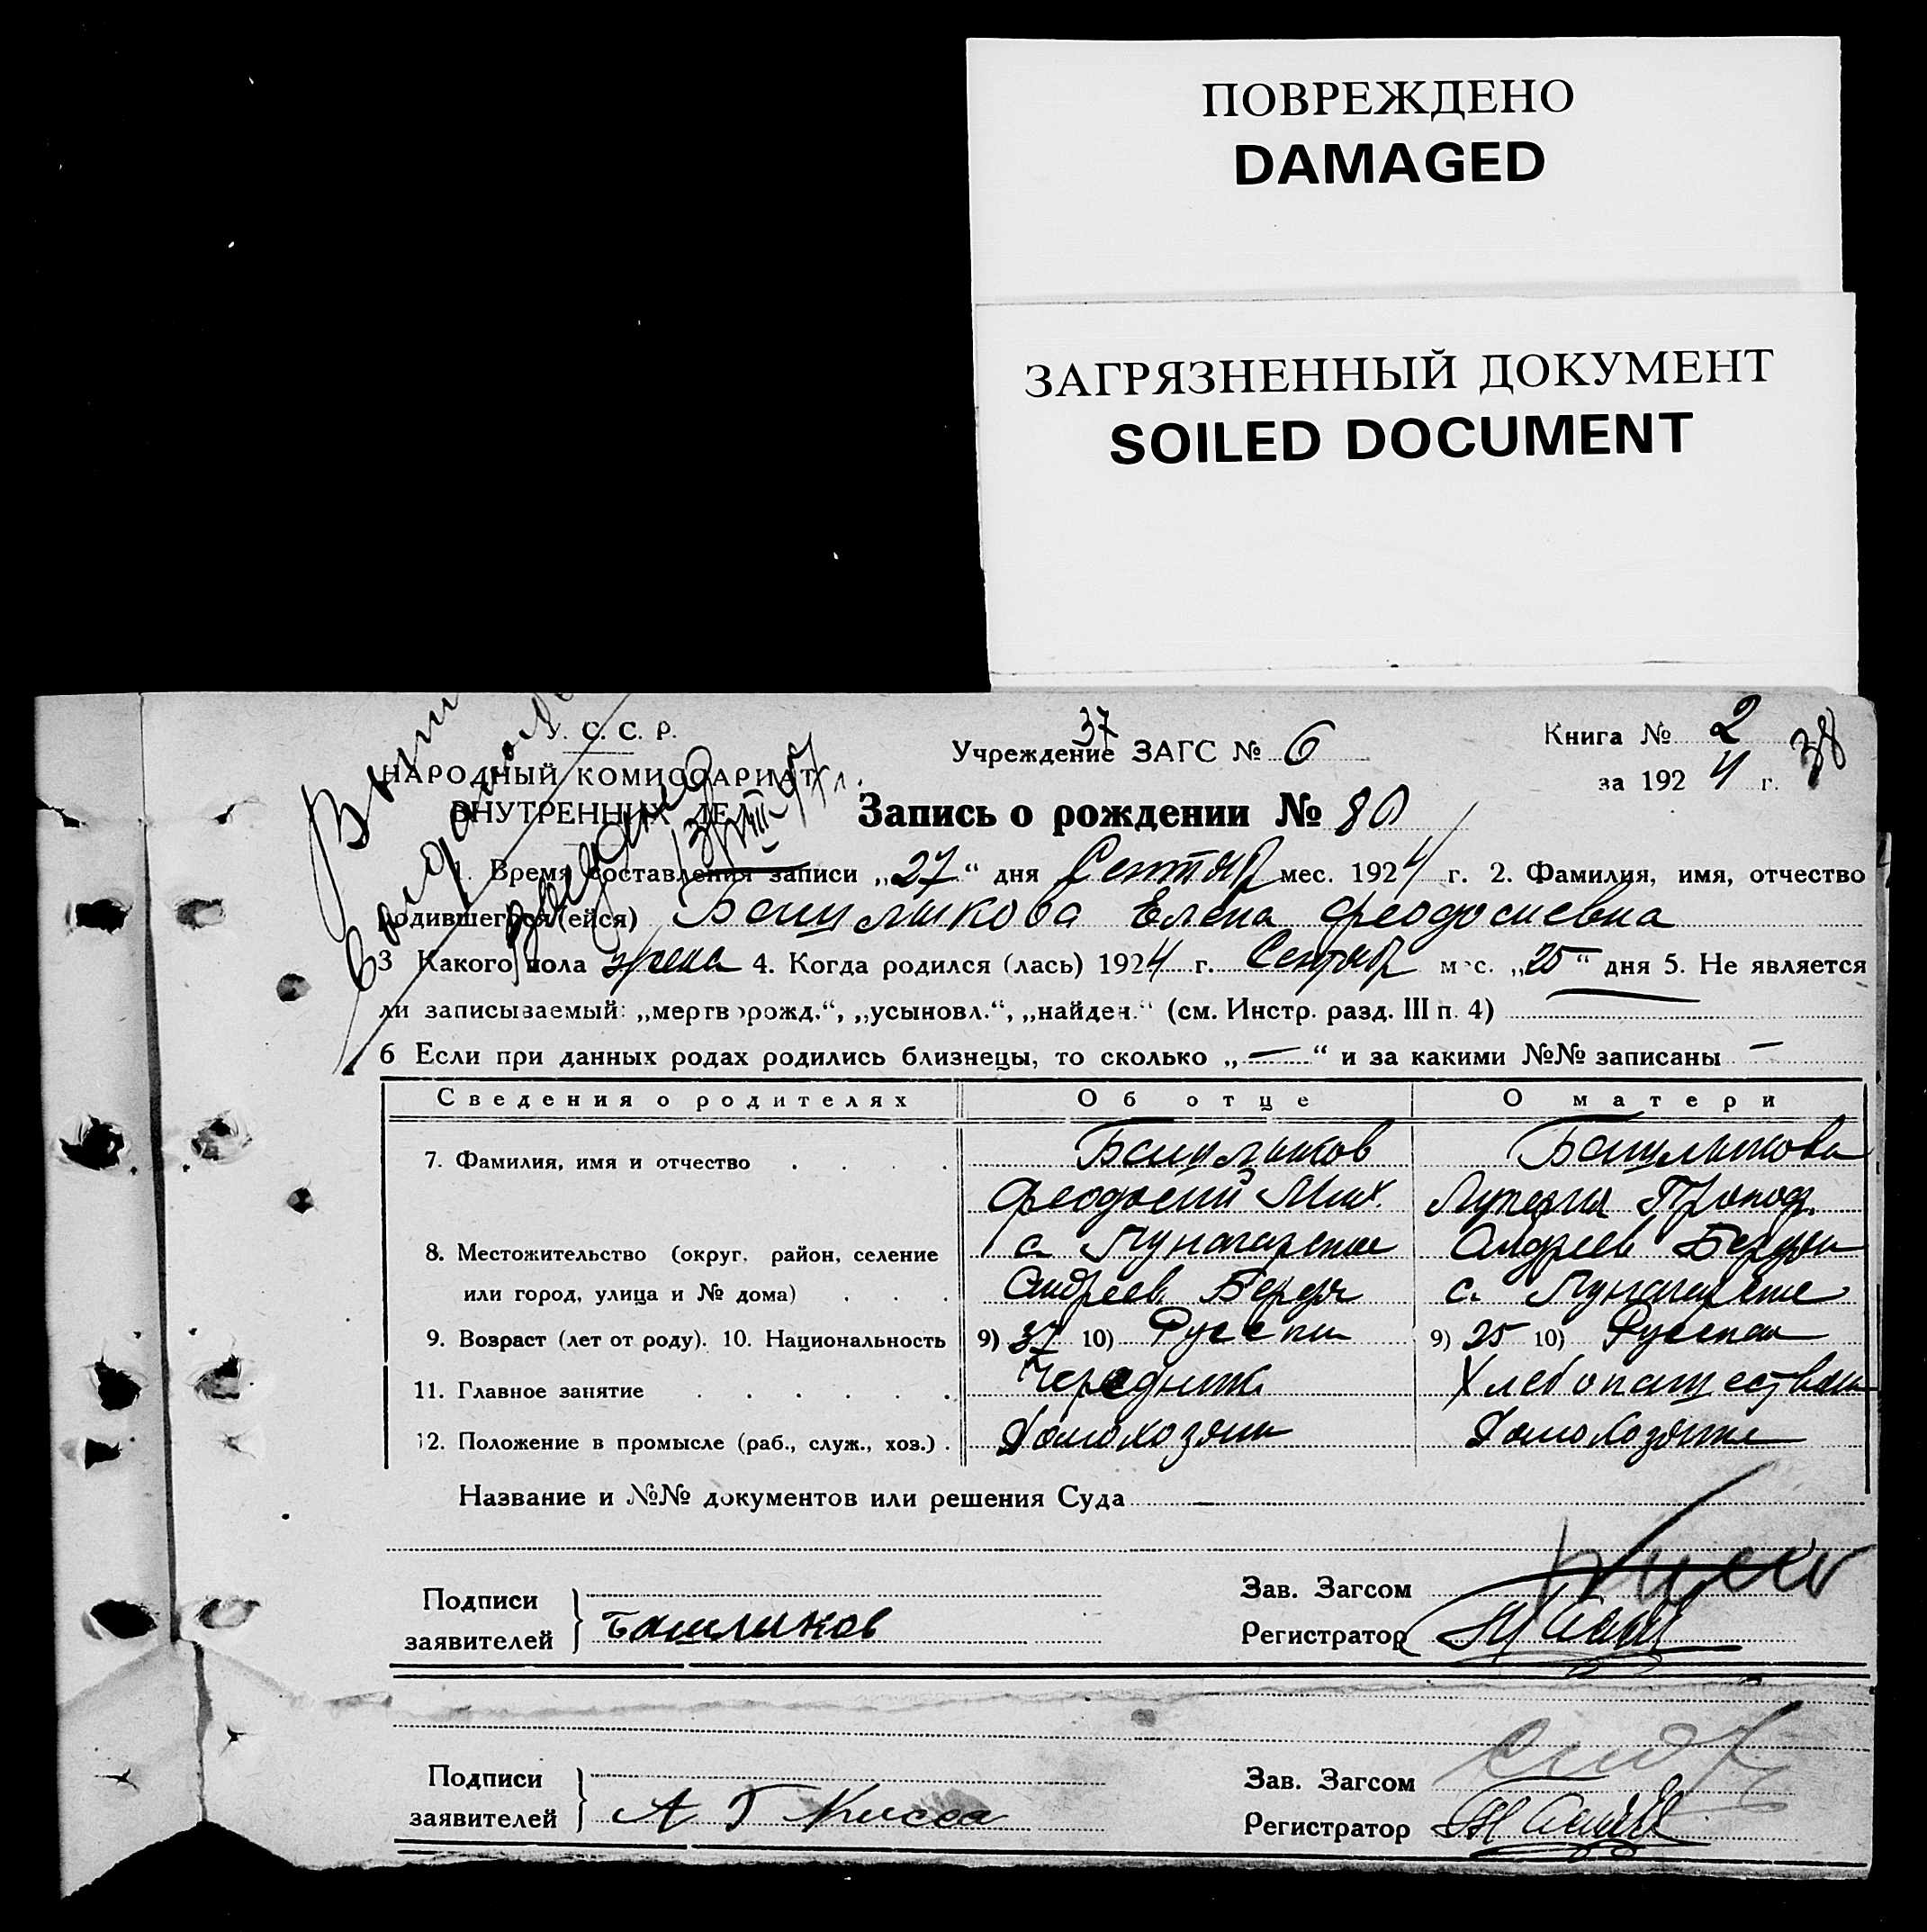 ПОВРЕЖДЕНО
DAMAGED
ЗАГРЯЗНЕННЫЙ ДОКУМЕНТ
SOILED DOCUMENT
У. С. С. Р.
НАРОДНЫЙ КОМИССАРИАТ
ВНУТРЕННИХ ДЕЛ
37
Учреждение ЗАГС № 6
Книга № 2
38
за 1924 г.
Запись о рождении № 80
1. Время составления записи „27“ дня Сентябр мес. 1924 г. 2. Фамилия, имя, отчество
родившегося (ейся) Башлыкова Елена Феодосиевна
3 Какого пола жена 4. Когда родился (лась) 1924 г. Сентябр мес. „25“ дня 5. Не является
ли записываемый: „мертворожд.“, „усыновл.“, „найден.“ (см. Инстр. разд. III п. 4)
6 Если при данных родах родились близнецы, то сколько „—“ и за какими №№ записаны —
Сведения о родителях Об отце О матери
7. Фамилия, имя и отчество Башлыков Башлыкова
Феодосий Мих.
8. Местожительство (округ, район, селение с. Андреев
или город, улица и № дома) Андреев с.
9. Возраст (лет от роду). 10. Национальность 9) 37 10) Русски 9) 25 10) Русская
11. Главное занятие Чередник
12. Положение в промысле (раб., служ., хоз.) Домохозяин Домохозяйка
Название и №№ документов или решения Суда —
Подписи
заявителей Башликов
Зав. Загсом
Регистратор
Подписи
заявителей А Г Кисса
Зав. Загсом
Регистратор